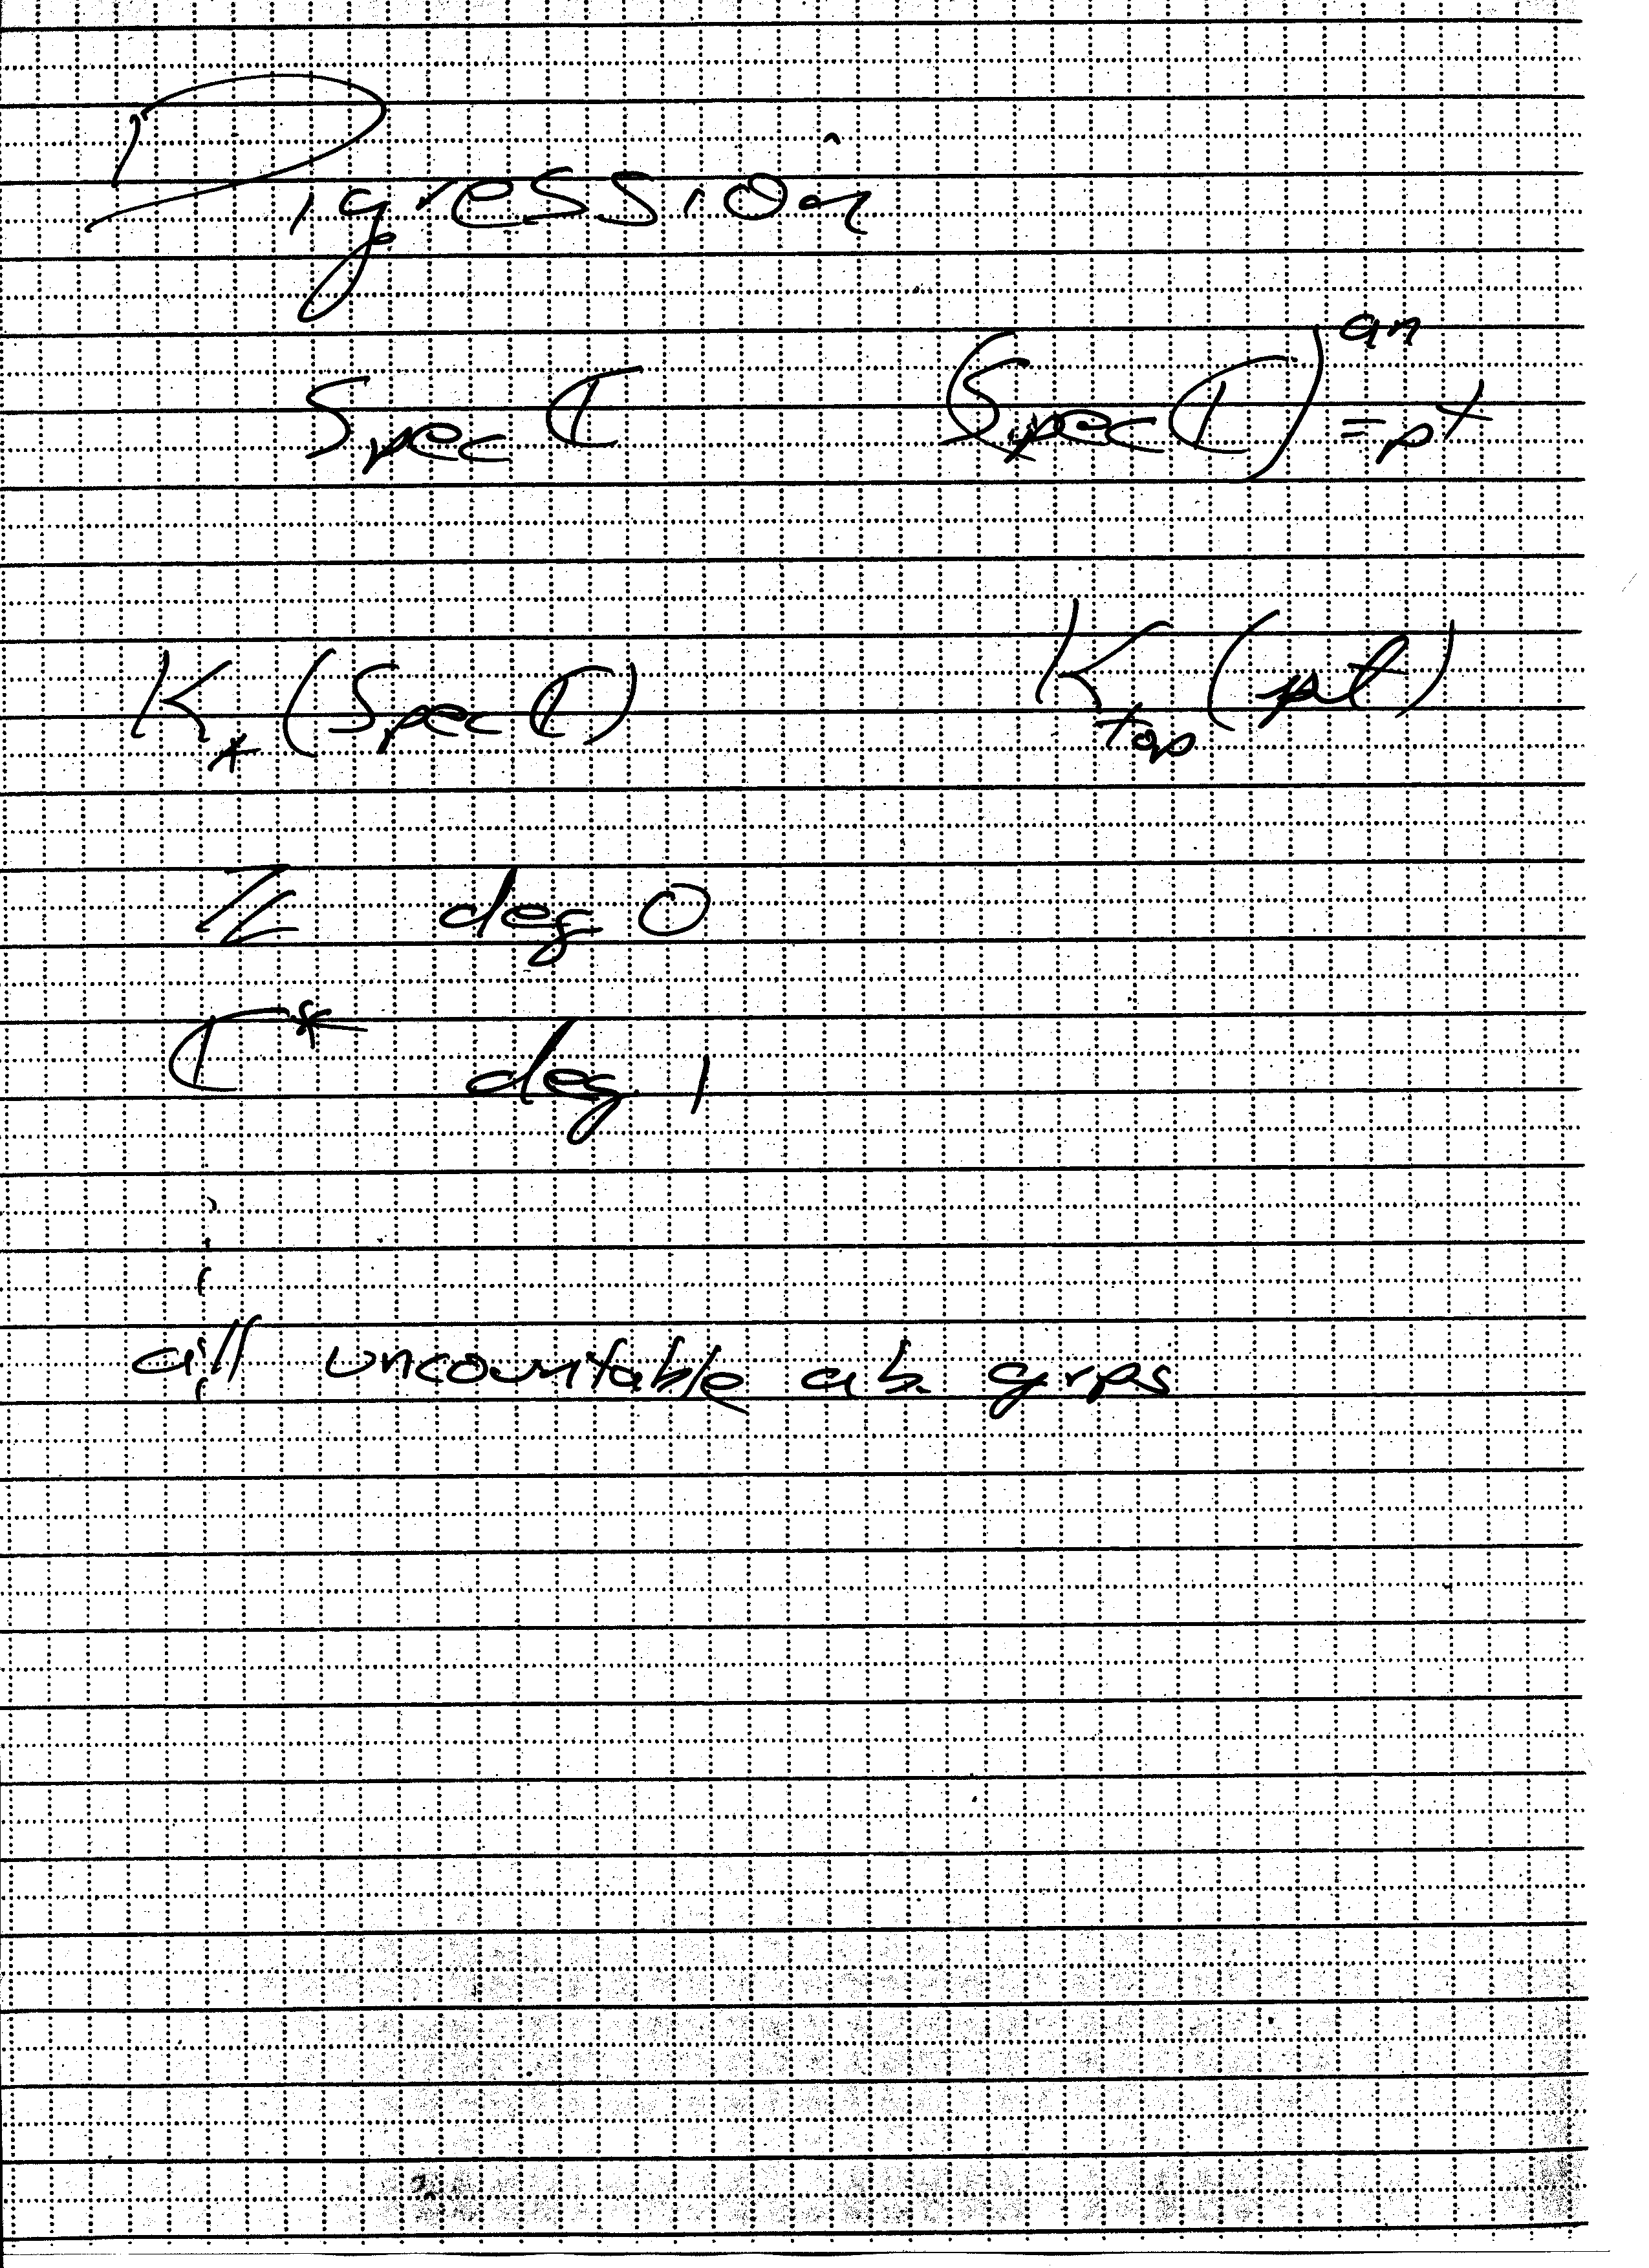 Digression
Spec ℂ (Spec ℂ)^an = pt
K_* (Spec ℂ) K_top (pt)
ℤ deg 0
ℂ^* deg 1
⋮
all uncountable ab. grps